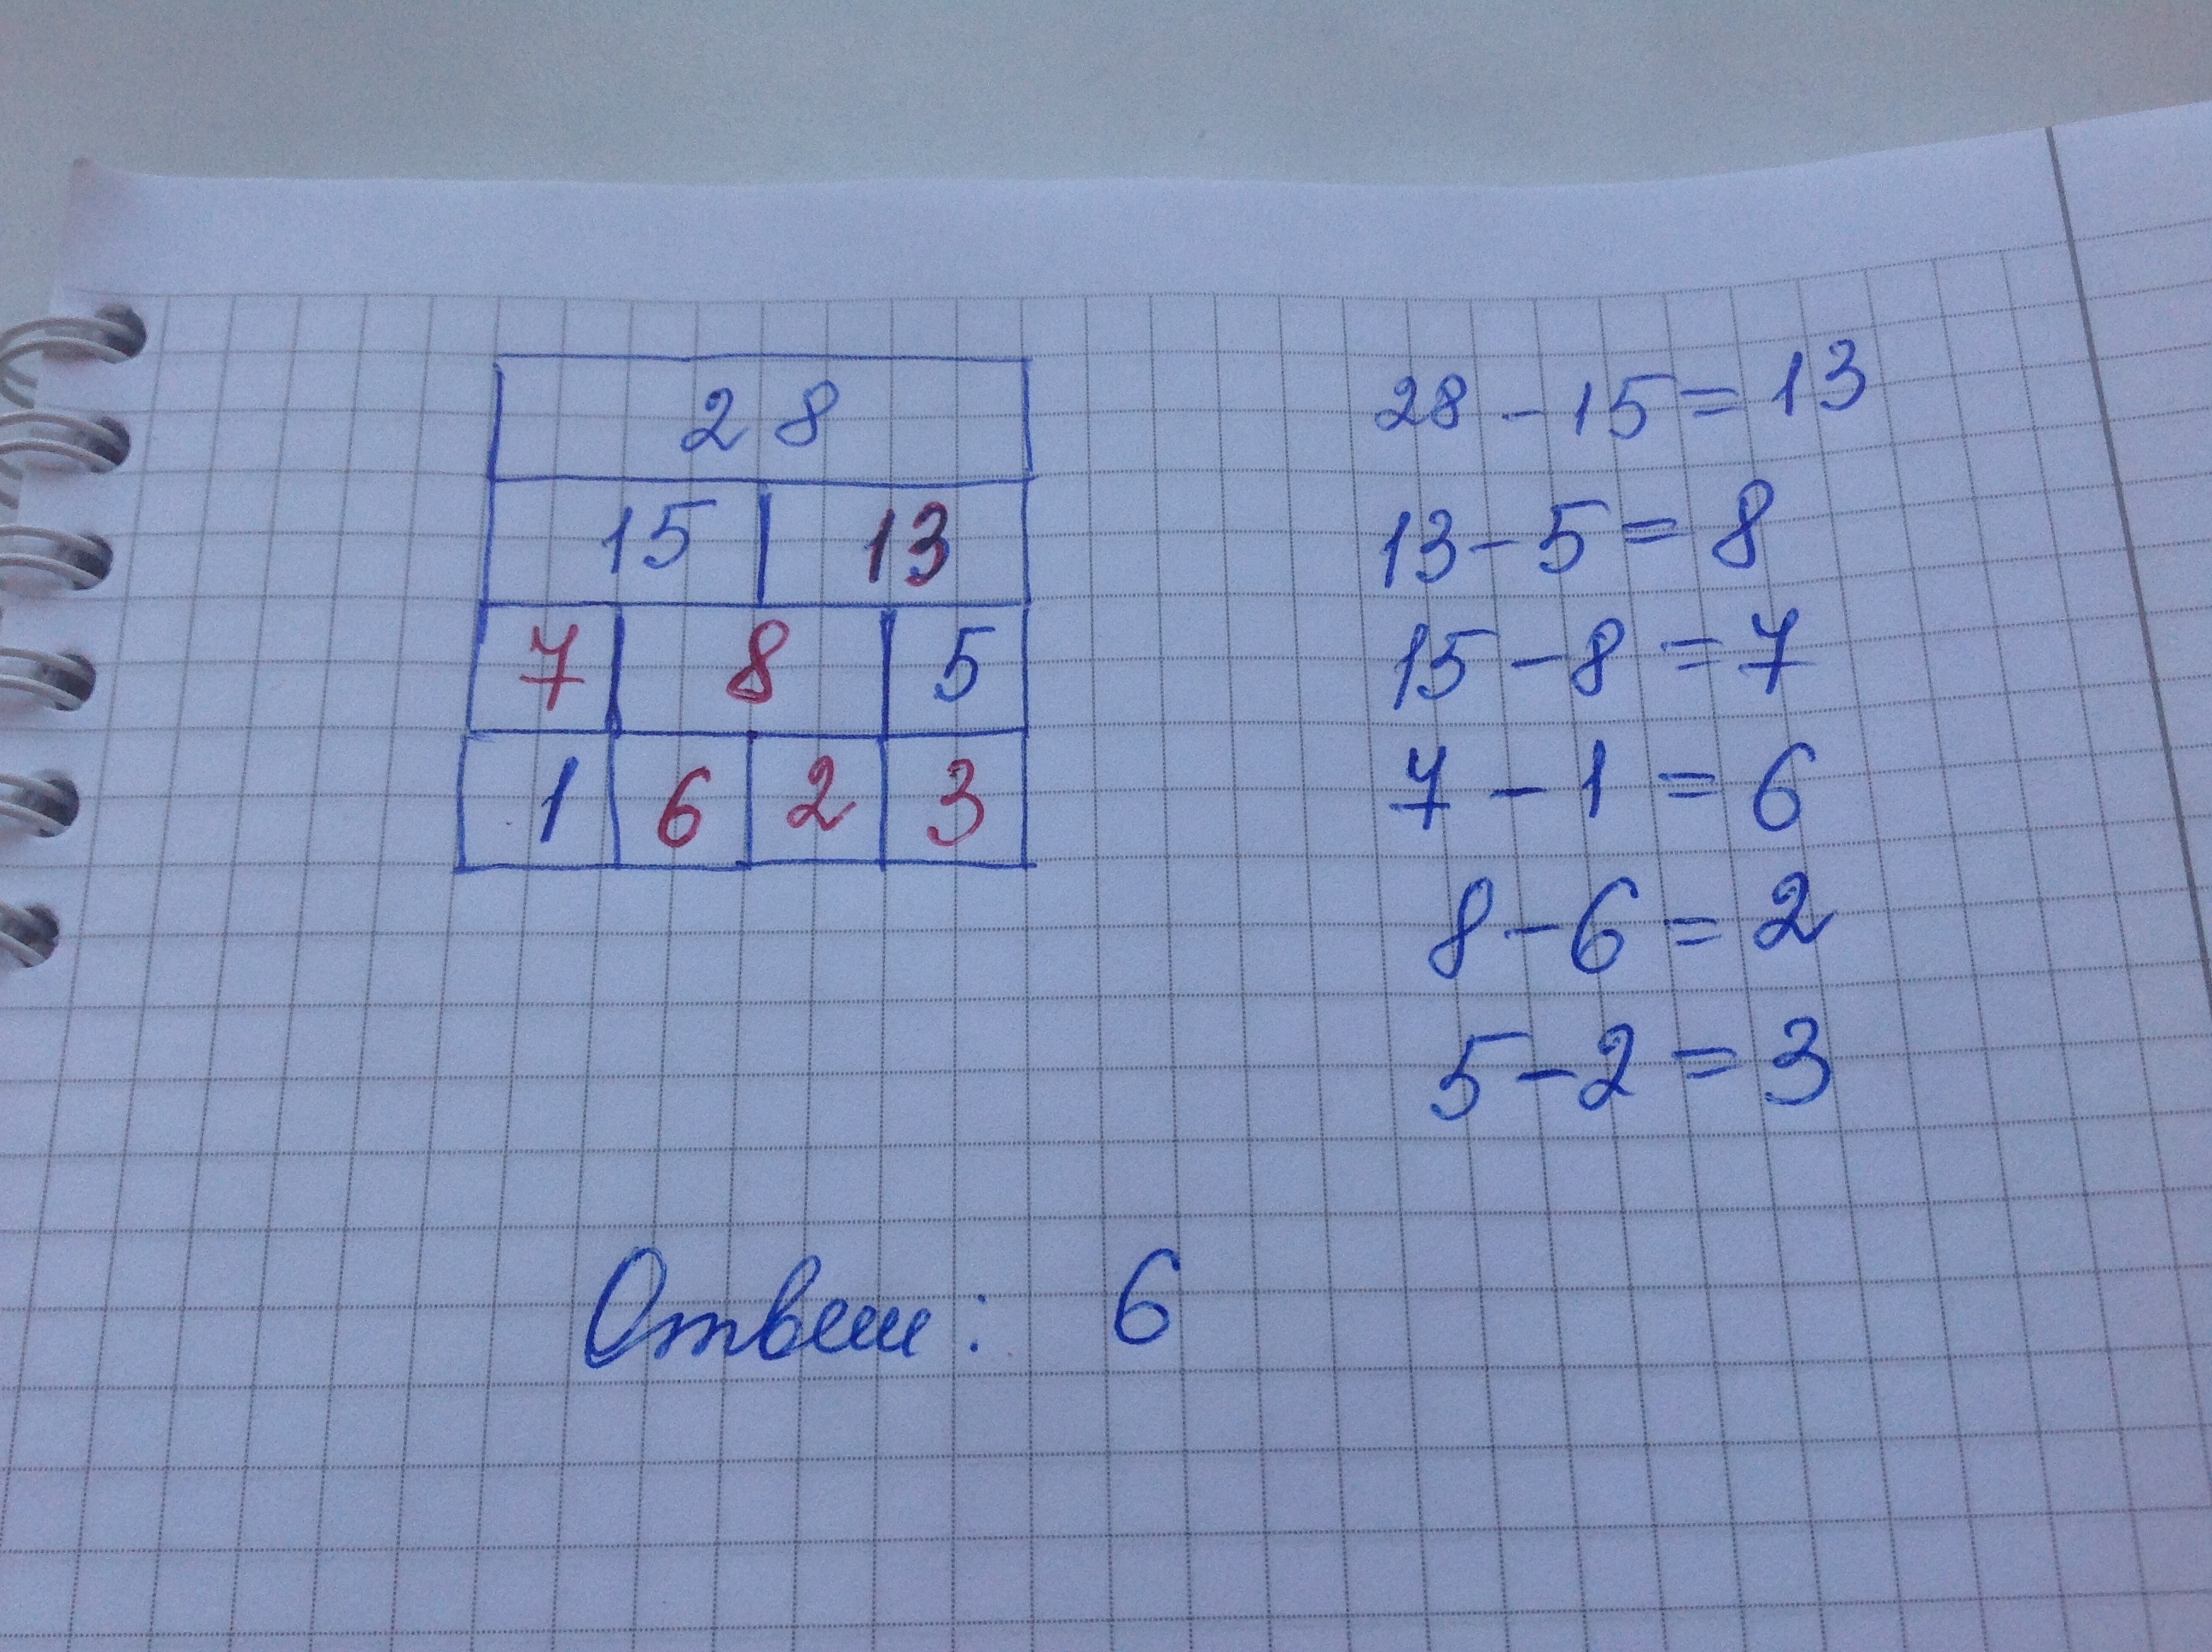 28
15 13
7 8 5
1 6 2 3
28 - 15 = 13
13 - 5 = 8
15 - 8 = 7
7 - 1 = 6
8 - 6 = 2
5 - 2 = 3
Ответ: 6